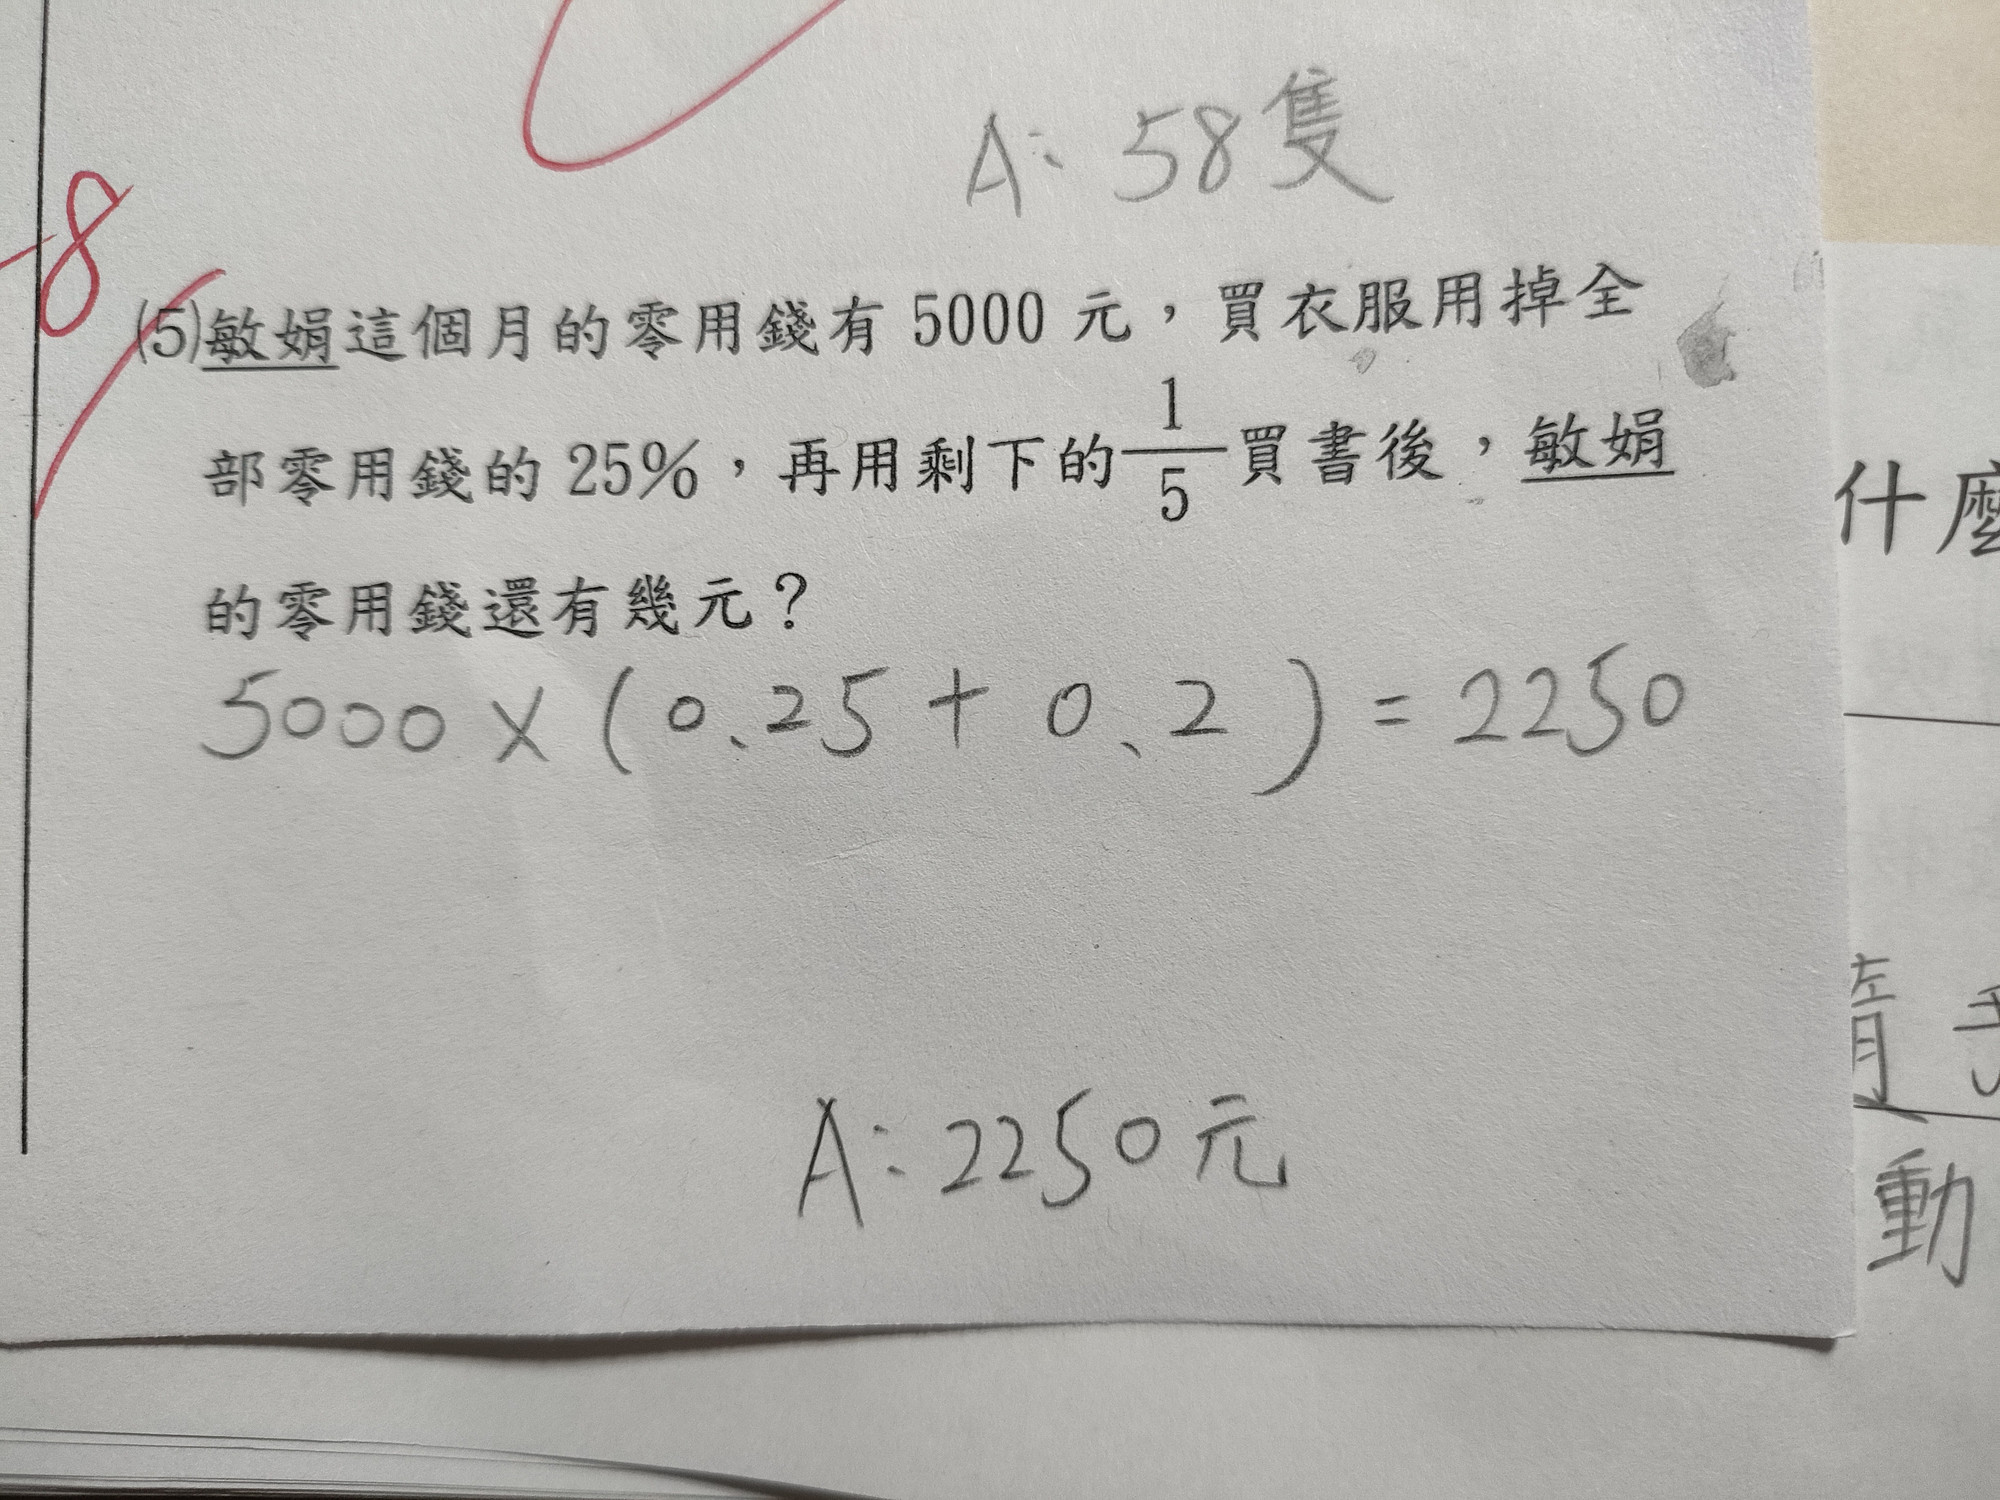 A: 58隻
-8
(5)敏娟這個月的零用錢有 5000 元，買衣服用掉全
部零用錢的 25%，再用剩下的1/5買書後，敏娟
的零用錢還有幾元？
5000 × ( 0.25 + 0.2 ) = 2250
A: 2250元
什麼
動